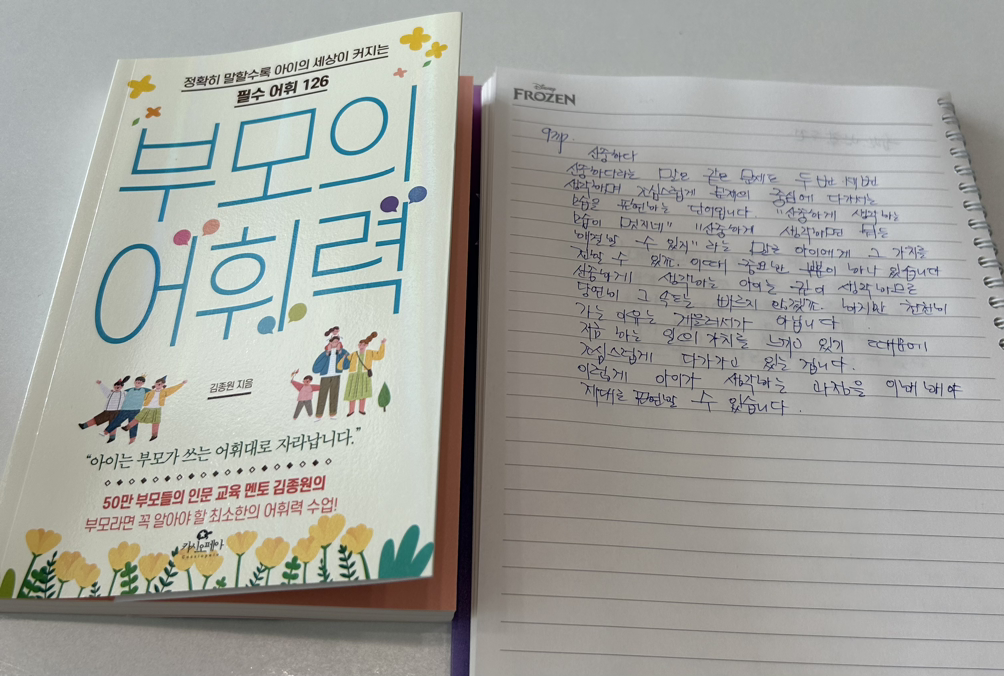 정확히 말할수록 아이의 세상이 커지는
필수 어휘 126
부모의
어휘력
김종원 지음
“아이는 부모가 쓰는 어휘대로 자라납니다.”
50만 부모들의 인문 교육 멘토 김종원의
부모라면 꼭 알아야 할 최소한의 어휘력 수업!
카시오페아
Cassiopeia
Disney
FROZEN
신중하다
신중하다라는 말은 같은 문제도 두번 세번
생각하며 조심스럽게 문제의 중심에 다가가는
모습을 표현하는 단어입니다. "신중하게 생각하는
모습이 멋지네" "신중하게 생각하면 뭐든
해결할 수 있지" 라는 말로 아이에게 그 가치를
전할 수 있죠. 이때 중요한 하나 있습니다
신중하게 생각하는 아이는 깊이 생각하므로
당연히 그 속도는 빠르지 않겠죠. 하지만 천천히
가는 이유는 게을러서가 아닙니다
지금 하는 일의 가치를 느끼고 있기 때문에
조심스럽게 다가가고 있는 겁니다.
이렇게 아이가 생각하는 과정을 이해해야
제대로 표현할 수 있습니다.